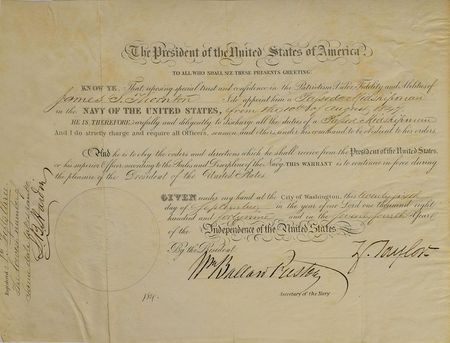 The President of the United States of America
TO ALL WHO SHALL SEE THESE PRESENTS GREETING:
KNOW YE. That reposing special trust and confidence in the Patriotism, Valor, Fidelity and Abilities of
James S. Thornton I do appoint him a Passed Midshipman
from the 
in the NAVY OF THE UNITED STATES,
HE IS THEREFORE carefully and diligently to discharge all the duties of a Passed Midshipman
And I do strictly charge and require all Officers, seamen and others under his command to be obedient to his orders.
And he is to obey the orders and directions which he shall receive from the President of the United States,
or his superior Officers according to the Rules and Discipline of the Navy. THIS WARRANT is to continue in force during
the pleasure of the President of the United States.
GIVEN under my hand at the City of Washington, this
day of September in the year of our Lord one thousand eight
hundred and forty nine and in the Seventy fourth Year
of the Independence of the United States
By the President
Z. Taylor
Wm. Ballard Preston
Secretary of the Navy
184
Registered